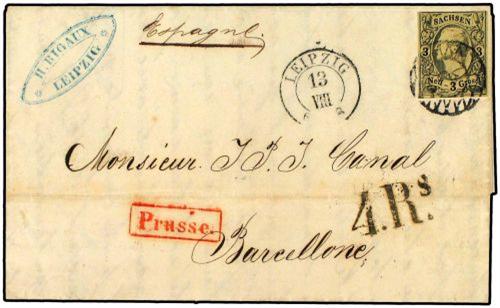 H. BIGAUX
LEIPZIG
Espagne.
LEIPZIG
13
VIII
SACHSEN
3 3
Neu- 3 Gros.
Monsieur J P J. Canal
Prusse.
4.Rs.
Barcellone